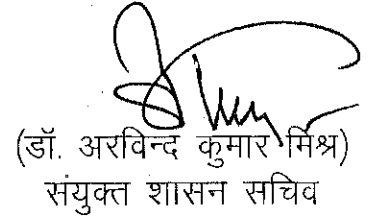 (डॉ. अरविन्द कुमार मिश्र)
संयुक्त शासन सचिव